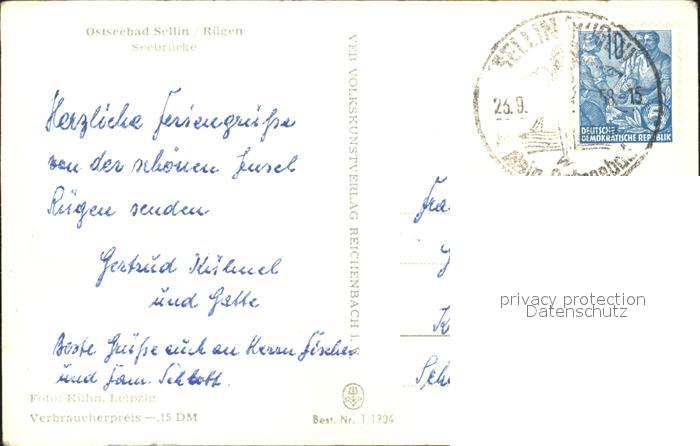 Ostseebad Sellin / Rügen
Seebrücke
Herzliche Feriengrüße
von der schönen Insel
Rügen senden
Gertrud Kühmel
und Gatte
Beste Grüße auch an Herrn Fischer
und Fam. Schlott.
Foto: Kühn, Leipzig
Verbraucherpreis —,15 DM
VEB VOLKSKUNSTVERLAG REICHENBACH i. V.
Best.-Nr. 1/1704
SELLIN (RÜGEN)
23.9.58-15
10
DEUTSCHE
DEMOKRATISCHE REPUBLIK
privacy protection
Datenschutz